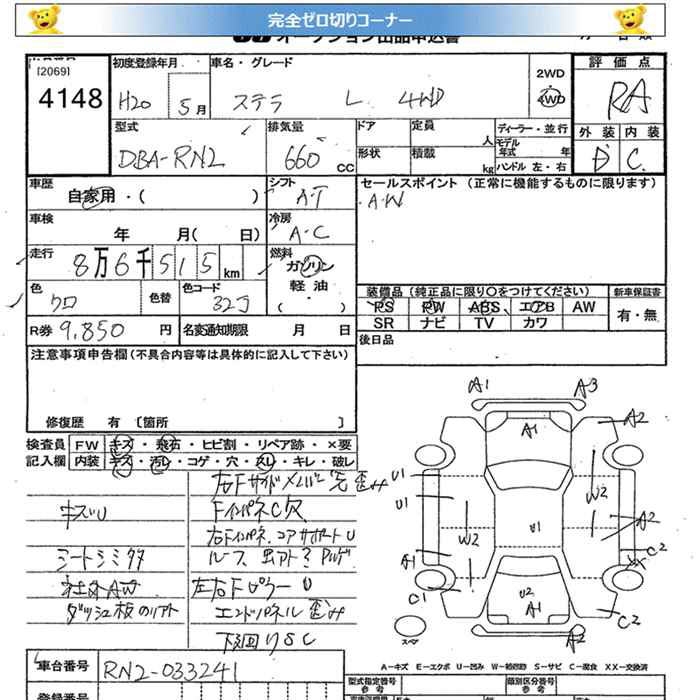 完全ゼロ切りコーナー
オークション出品申込書
[2069]
4148
初度登録年月
H20 5月
車名・グレード
ステラ L 4WD
2WD
4WD
評価点
RA
外装 内装
D C
型式
DBA-RN2
排気量
660 CC
ドア 定員 人
形状 積載 kg
ディーラー・並行
モデル年式 年
ハンドル 左・右
車歴
自家用・( )
シフト
AT
セールスポイント (正常に機能するものに限ります)
AW
車検
年 月( 日)
冷房
A・C
走行
8万6千515km
燃料
ガソリン
軽油
・
( )
色
クロ
色替
色カラーコード
32J
装備品 (純正品に限り〇をつけてください)
新車保証書
PS PW ABS エアB AW
SR ナビ TV カワ
有・無
R券 9,850 円
名変通知期限 月 日
後日品
注意事項申告欄(不具合内容等は具体的に記入して下さい)
修復歴 有 [箇所 ]
検査員 FW キズ・飛石・ヒビ割・リペア跡・×要
記入欄 内装 キズ・汚レ・コゲ・穴・スレ・キレ・破レ
右Fサイドメンバー先歪み
キズU
FインパネC欠
右Fインパネ、コアサポートU
シートシミ
ルーフ
社外AW
左右FピラーU
ダッシュ板
エンドパネル歪み
下回りSC
A1 A3
A1 A2
U1
U1 W2
U1 A2
W2
A1 C2
XX
C1 U2
A1 C2
A2
スペア
A-キズ E-エクボ U-凹み W-補修跡 S-サビ C-腐食 XX-交換済
車台番号
RN2-033241
型式指定番号
参考
類別区分番号
参考
登録番号